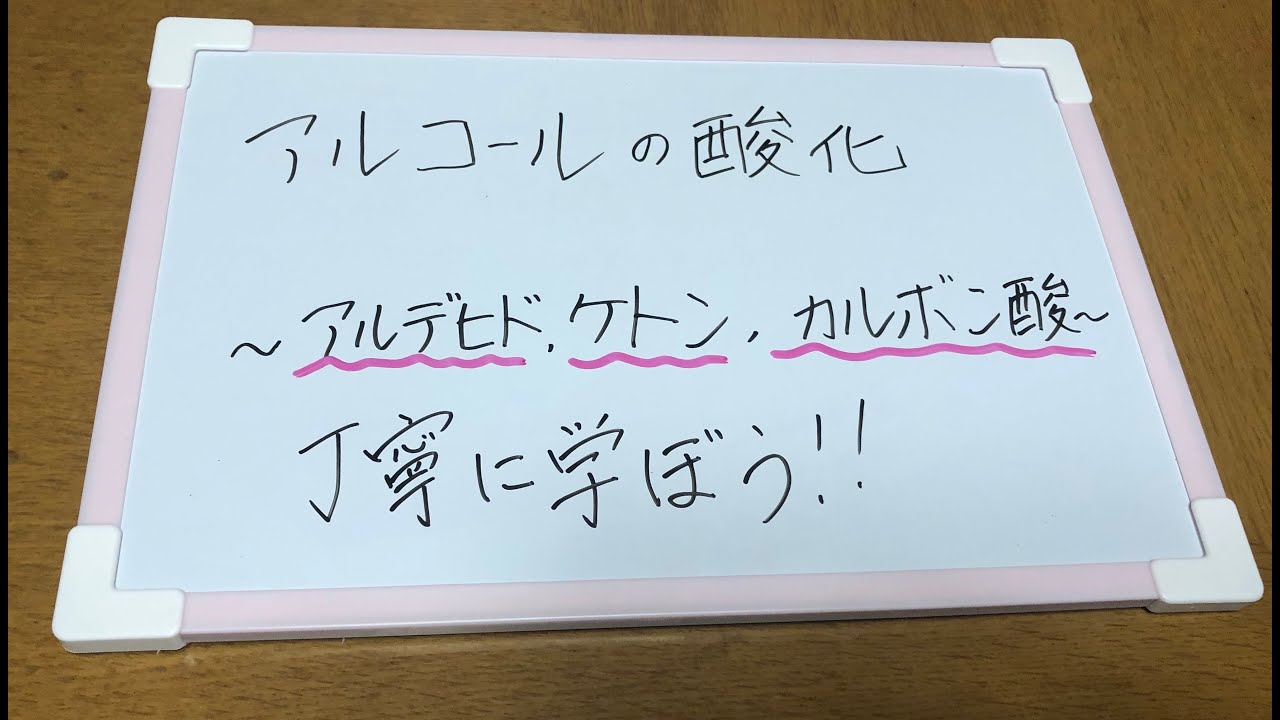 アルコールの酸化
~アルデヒド,ケトン,カルボン酸~
丁寧に学ぼう!!